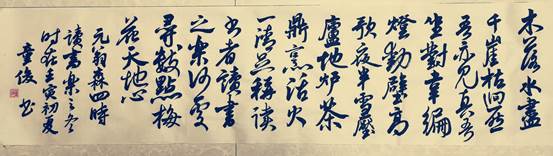 木落水盡
千崖枯迥然
吾亦见真吾
坐對韋編
燈動壁高
歌夜半雪壓
廬地炉茶
鼎烹活火
一清足稱读
书者讀書
之樂何處
尋數點梅
花天地心
元翁森四時
读書樂之冬
时在壬寅初夏
童俊书